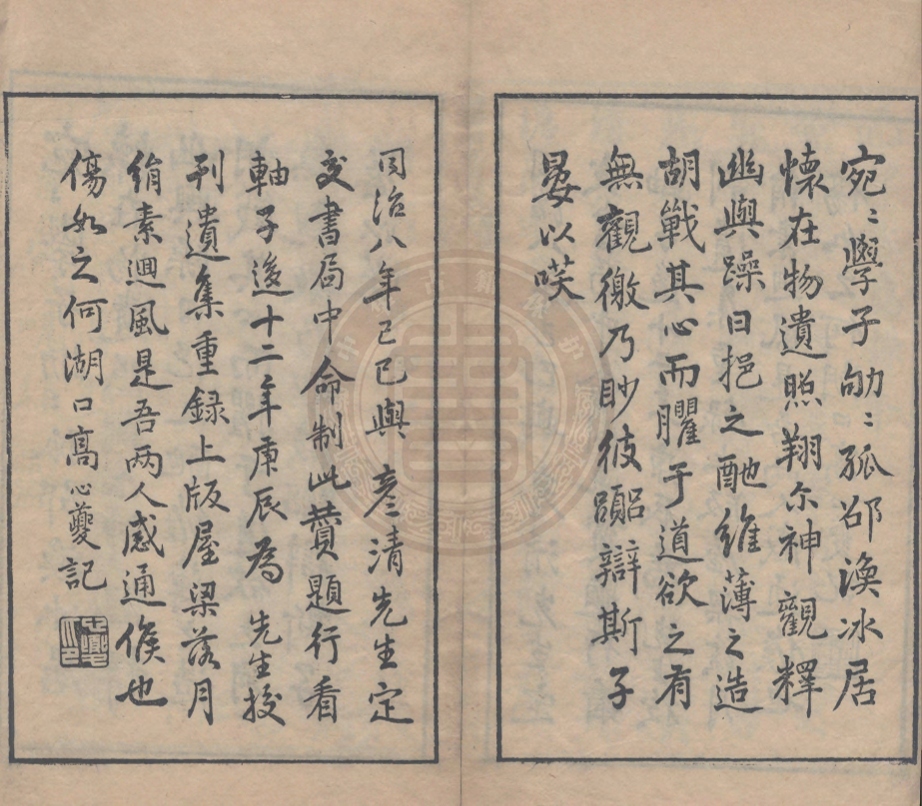 宛〻學子劬〻孤邵渙冰居
懷在物遺照翔尒神觀釋
幽與躁日挹之酏維薄之造
胡戰其心而臞于道欲之有
無觀徼乃眇彼躁辯斯子
晏以唉
同治八年己巳與 彥清先生定
交書局中命制此贊題行看
軸子後十二年庚辰為 先生挍
刊遺集重錄上版屋梁落月
絹素迴風是吾兩人感通候也
傷如之何湖口高心夔記